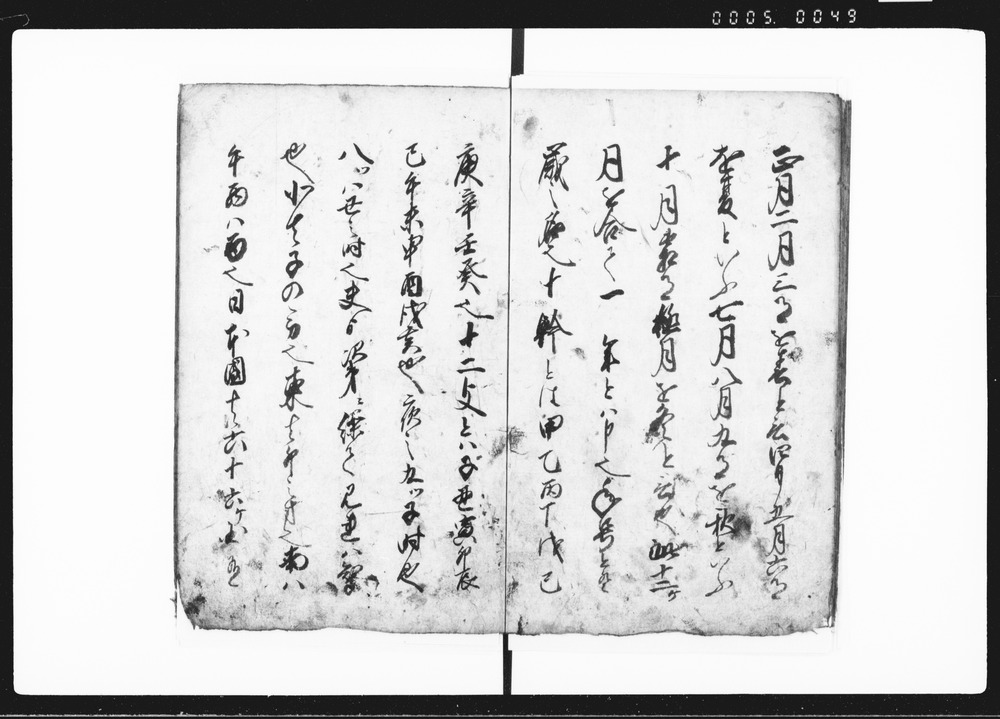 0005.0049
正月二月三月を春と云四月五月六月
を夏といふ七月八月九月を秋といふ
十月霜月極月を冬と云也此十二ヶ
月を合て一年とハ申也年号を
歳之 十幹とは甲乙丙丁戊己
庚辛壬癸也十二支とハ子丑寅卯辰
巳午未申酉戌亥也夜之九ツ子時也
八ツハ丑之時也 次第ニ
也北ハ子の方也東ハ卯之方也南ハ
午西ハ酉也日本國ハ六十六ヶ国